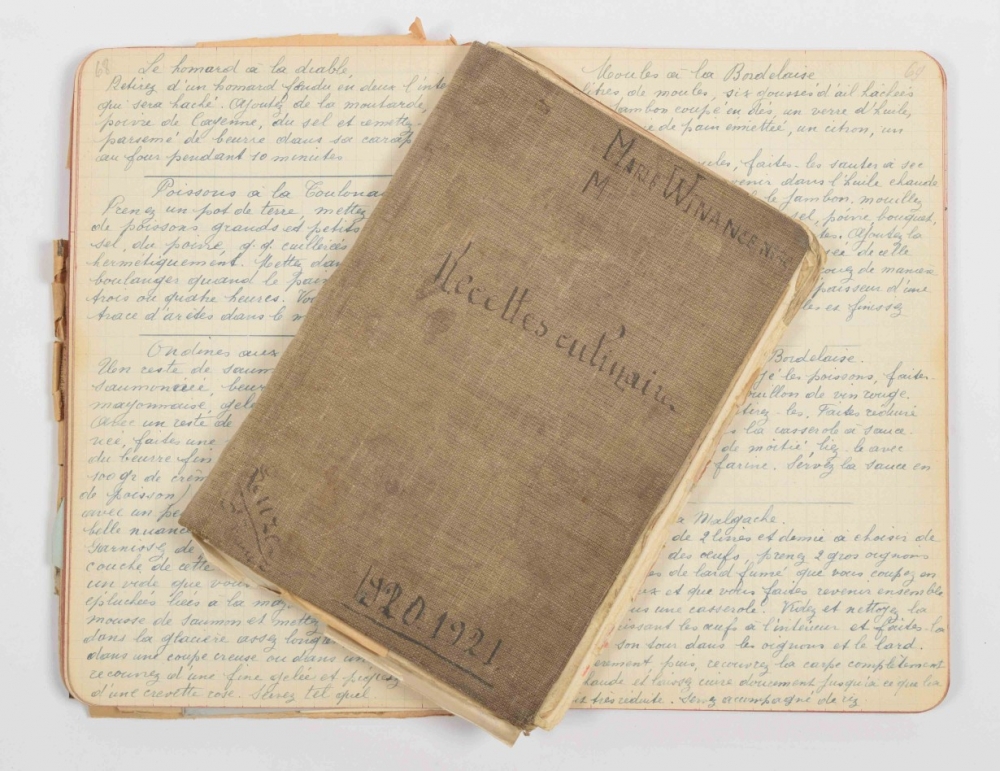 68
Le homard à la diable
Retirez d'un homard fendu en deux l'inte
qui sera haché. Ajoutez de la moutarde,
poivre de Cayenne, du sel et remettez
parsemé de beurre dans sa carap
au four pendant 10 minutes
Poissons à la Toulonai
Prenez un pot de terre, mettez
de poissons grands et petits
sel, du poivre, q.q. cuillerées
hermétiquement. Mettez dan
boulanger quand le pain
trois ou quatre heures. Vou
trace d'arêtes dans le m
Ondines aux
Un reste de saum
saumonée, beur
mayonnaise, gelé
Avec un reste de
vée, faites une
du beurre fin
100 gr de crèm
de poisson
avec un pe
belle nuanc
Garnissez de
couche de cette
un vide que vous
épluchées liées à la may
mousse de saumon et mettez
dans la glacière assez longte
dans une coupe creuse ou dans un
recouvrez d'une fine gelée et piquez
d'une crevette rose. Servez tel quel
MARIE WINANCE
M
Recettes culinaires
1920 1921
69
Moules à la Bordelaise
litres de moules, six gousses d'ail hachées
jambon coupé en dés, un verre d'huile,
de pain émiettée, un citron, un
faites-les sauter à sec
venir dans l'huile chaude
le jambon, mouillez
sel, poivre, bouquet,
Ajoutez la
de celle
couvez de manière
épaisseur d'une
et finissez
Bordelaise.
les poissons, faites-
bouillon de vin rouge.
tirez-les. Faites réduire
la casserole à sauce.
de moitié, liez-le avec
farine. Servez la sauce en
a Malgache.
de 2 livres et demie à choisir de
des œufs, prenez 2 gros oignons
de lard fumé que vous coupez en
et que vous faites revenir ensemble
une casserole. Videz et nettoyez la
issant les œufs à l'intérieur et faites-la
son tour dans les oignons et le lard.
puis, recouvrez la carpe complètement
chaude et laissez cuire doucement jusqu'à ce que la
très réduite. Servez accompagné de riz.